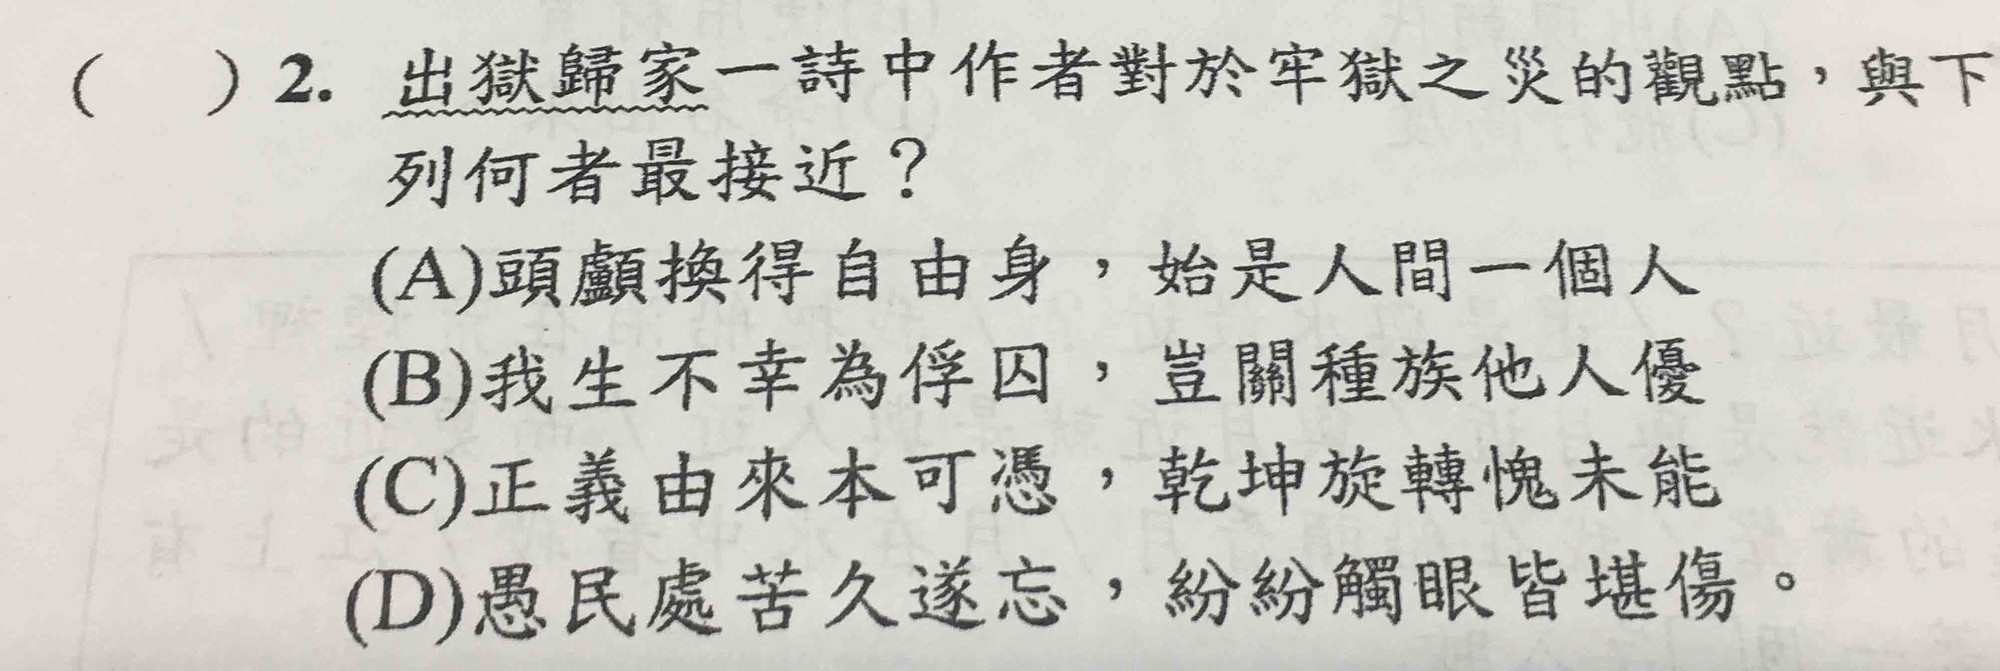 (　)2. 出獄歸家一詩中作者對於牢獄之災的觀點，與下
列何者最接近？
(A)頭顱換得自由身，始是人間一個人
(B)我生不幸為俘囚，豈關種族他人優
(C)正義由來本可憑，乾坤旋轉愧未能
(D)愚民處苦久遂忘，紛紛觸眼皆堪傷。